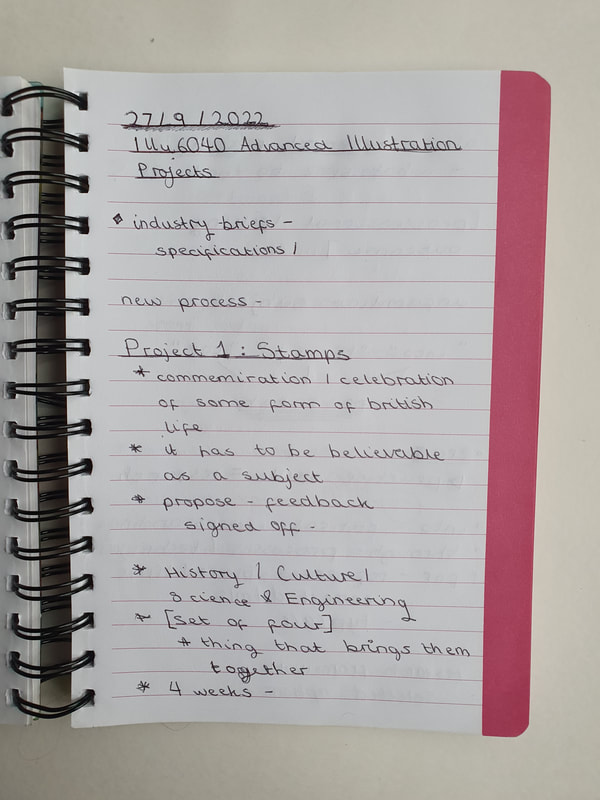 27/9/2022
Illu6040 Advanced Illustration
Projects
industry briefs -
specifications /
new process -
Project 1 : Stamps
* commemiration / celebration
of some form of british
life
* it has to be believable
as a subject
* propose - feedback
signed off -
* History / Culture /
Science & Engineering
~ [set of four]
* thing that brings them
together
* 4 weeks -